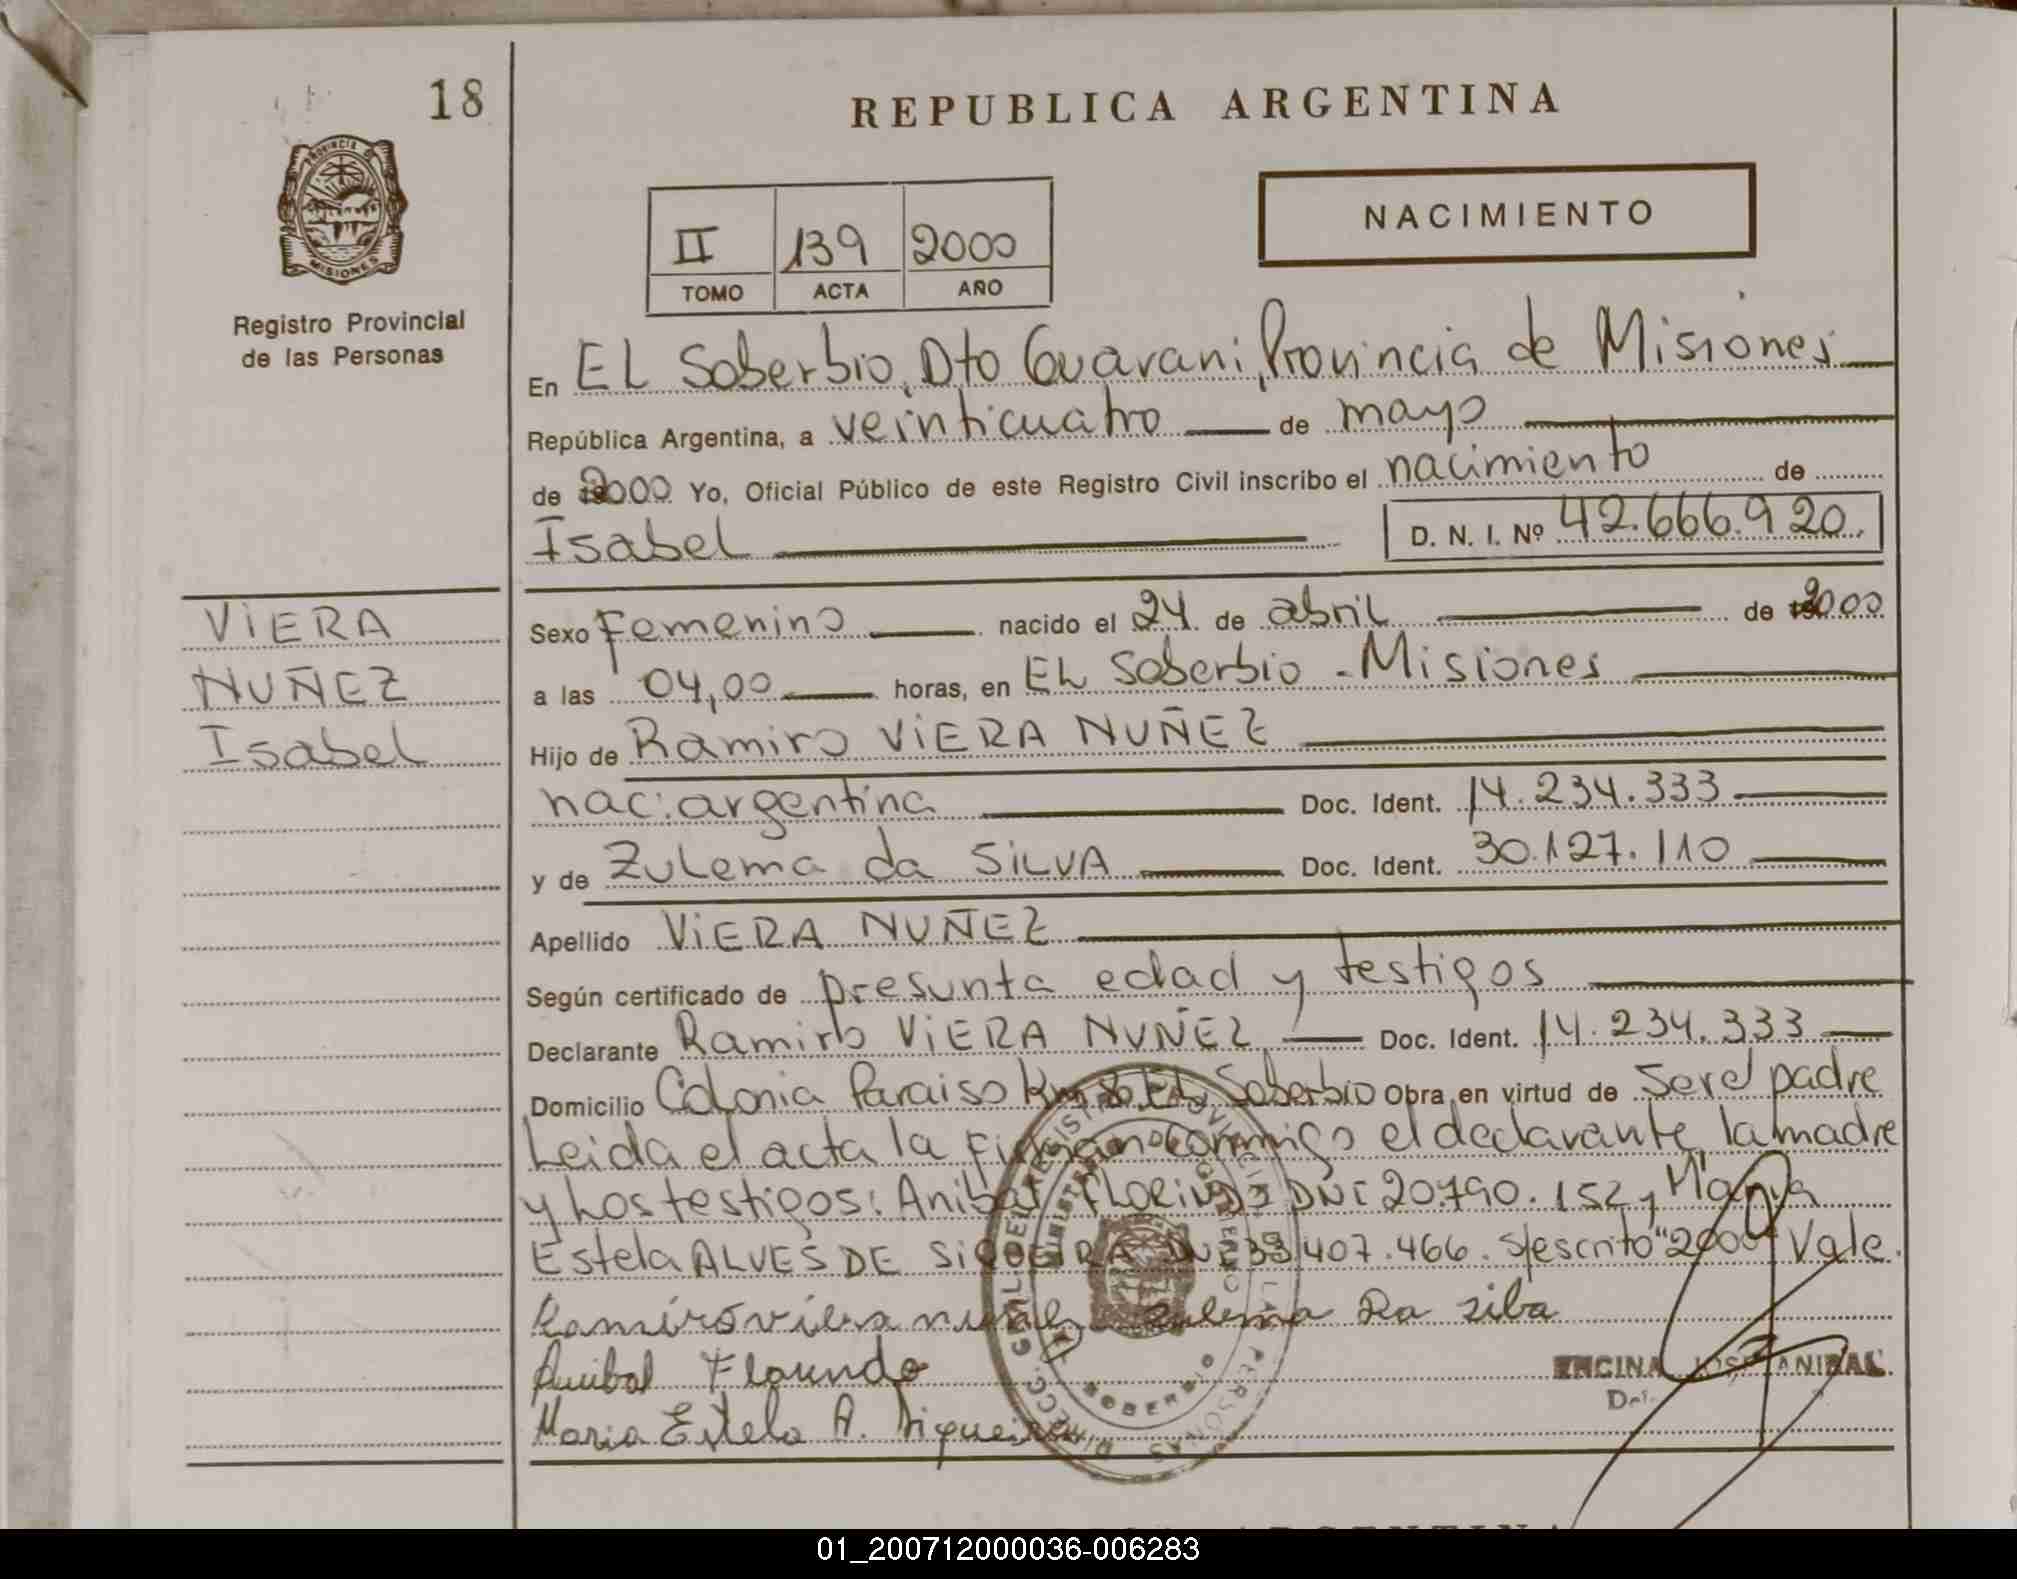 18
REPUBLICA ARGENTINA
PROVINCIA DE
MISIONES
Registro Provincial
de las Personas
NACIMIENTO
II 139 2000
TOMO ACTA AÑO
En EL Soberbio, Dto Guarani, Provincia de Misiones
República Argentina, a veinticuatro de mayo
de 2000 Yo, Oficial Público de este Registro Civil inscribo el nacimiento de
Isabel D. N. I. Nº 42.666.920.
VIERA
NUÑEZ
Isabel
Sexo Femenino nacido el 24 de abril de 2000
a las 04,00 horas, en EL Soberbio - Misiones
Hijo de Ramiro VIERA NUÑEZ
nac: argentina Doc. Ident. 14.234.333
y de Zulema da SILVA Doc. Ident. 30.127.110
Apellido VIERA NUÑEZ
Según certificado de presunta edad y testigos
Declarante Ramiro VIERA NUÑEZ Doc. Ident. 14.234.333
Domicilio Colonia Paraiso Km 8 EL Soberbio Obra en virtud de ser el padre
Leida el acta la firman conmigo el declarante, la madre
y Los testigos: Anibal FLORINDO DNI 20.790.152 y Maria
Estela ALVES DE SIQUEIRA DNI 33.407.466. s/escrito "2000" Vale.
Ramiro viera nuñez Zulema Da Silba
Anibal Florindo
ENCINA JOSE ANIBAL
Maria Estela A. Siqueira
SOBERBIO
01_200712000036-006283